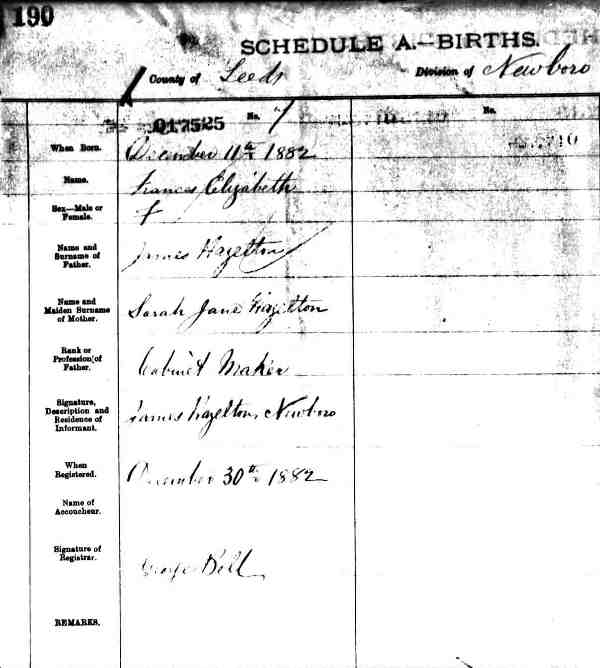 190
SCHEDULE A.—BIRTHS.
County of Leeds Division of Newboro
017525 No. 7 No.
When Born. December 11th 1882
Name. Frances Elizabeth
Sex—Male or Female. f
Name and Surname of Father. James Hazelton
Name and Maiden Surname of Mother. Sarah Jane Hazelton
Rank or Profession of Father. Cabinet Maker
Signature, Description and Residence of Informant. James Hazelton, Newboro
When Registered. December 30th 1882
Name of Accoucheur.
Signature of Registrar. George Bell
REMARKS.